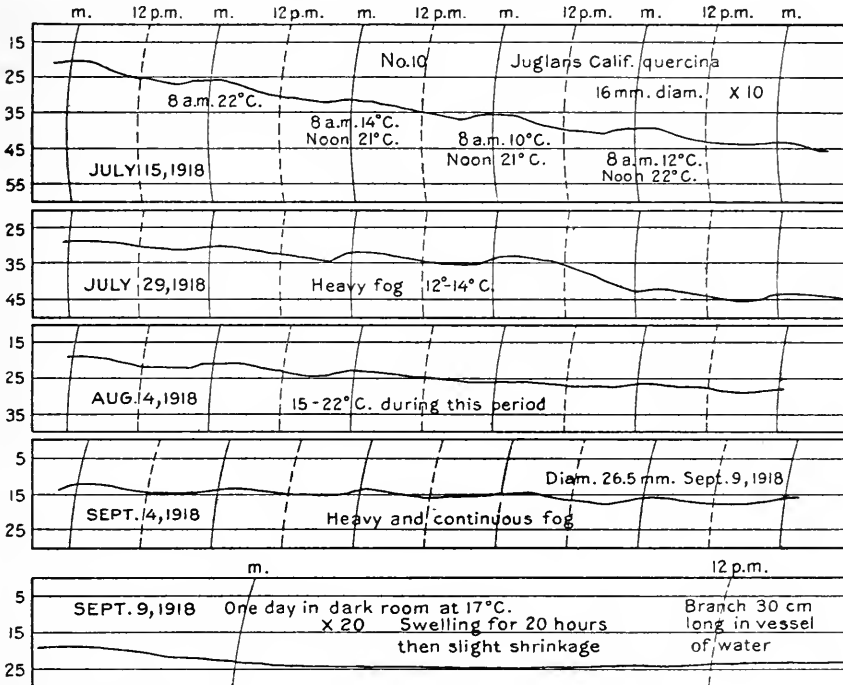 m. 12 p.m. m. 12 p.m. m. 12 p.m. m. 12 p.m. m. 12 p.m. m.
15
No.10 Juglans Calif. quercina
25
8 a.m. 22°C.
16 mm. diam. X 10
35
8 a.m. 14°C.
Noon 21°C.
8 a.m. 10°C.
Noon 21°C.
8 a.m. 12°C.
Noon 22°C.
45
JULY 15, 1918
55
25
35
JULY 29, 1918 Heavy fog 12°-14°C.
45
15
25
AUG. 14, 1918 15-22°C. during this period
35
5
Diam. 26.5 mm. Sept. 9, 1918
15
SEPT. 14, 1918 Heavy and continuous fog
25
m. 12 p.m.
5
SEPT. 9, 1918 One day in dark room at 17°C.
X 20 Swelling for 20 hours
then slight shrinkage
Branch 30 cm
long in vessel
of water
15
25